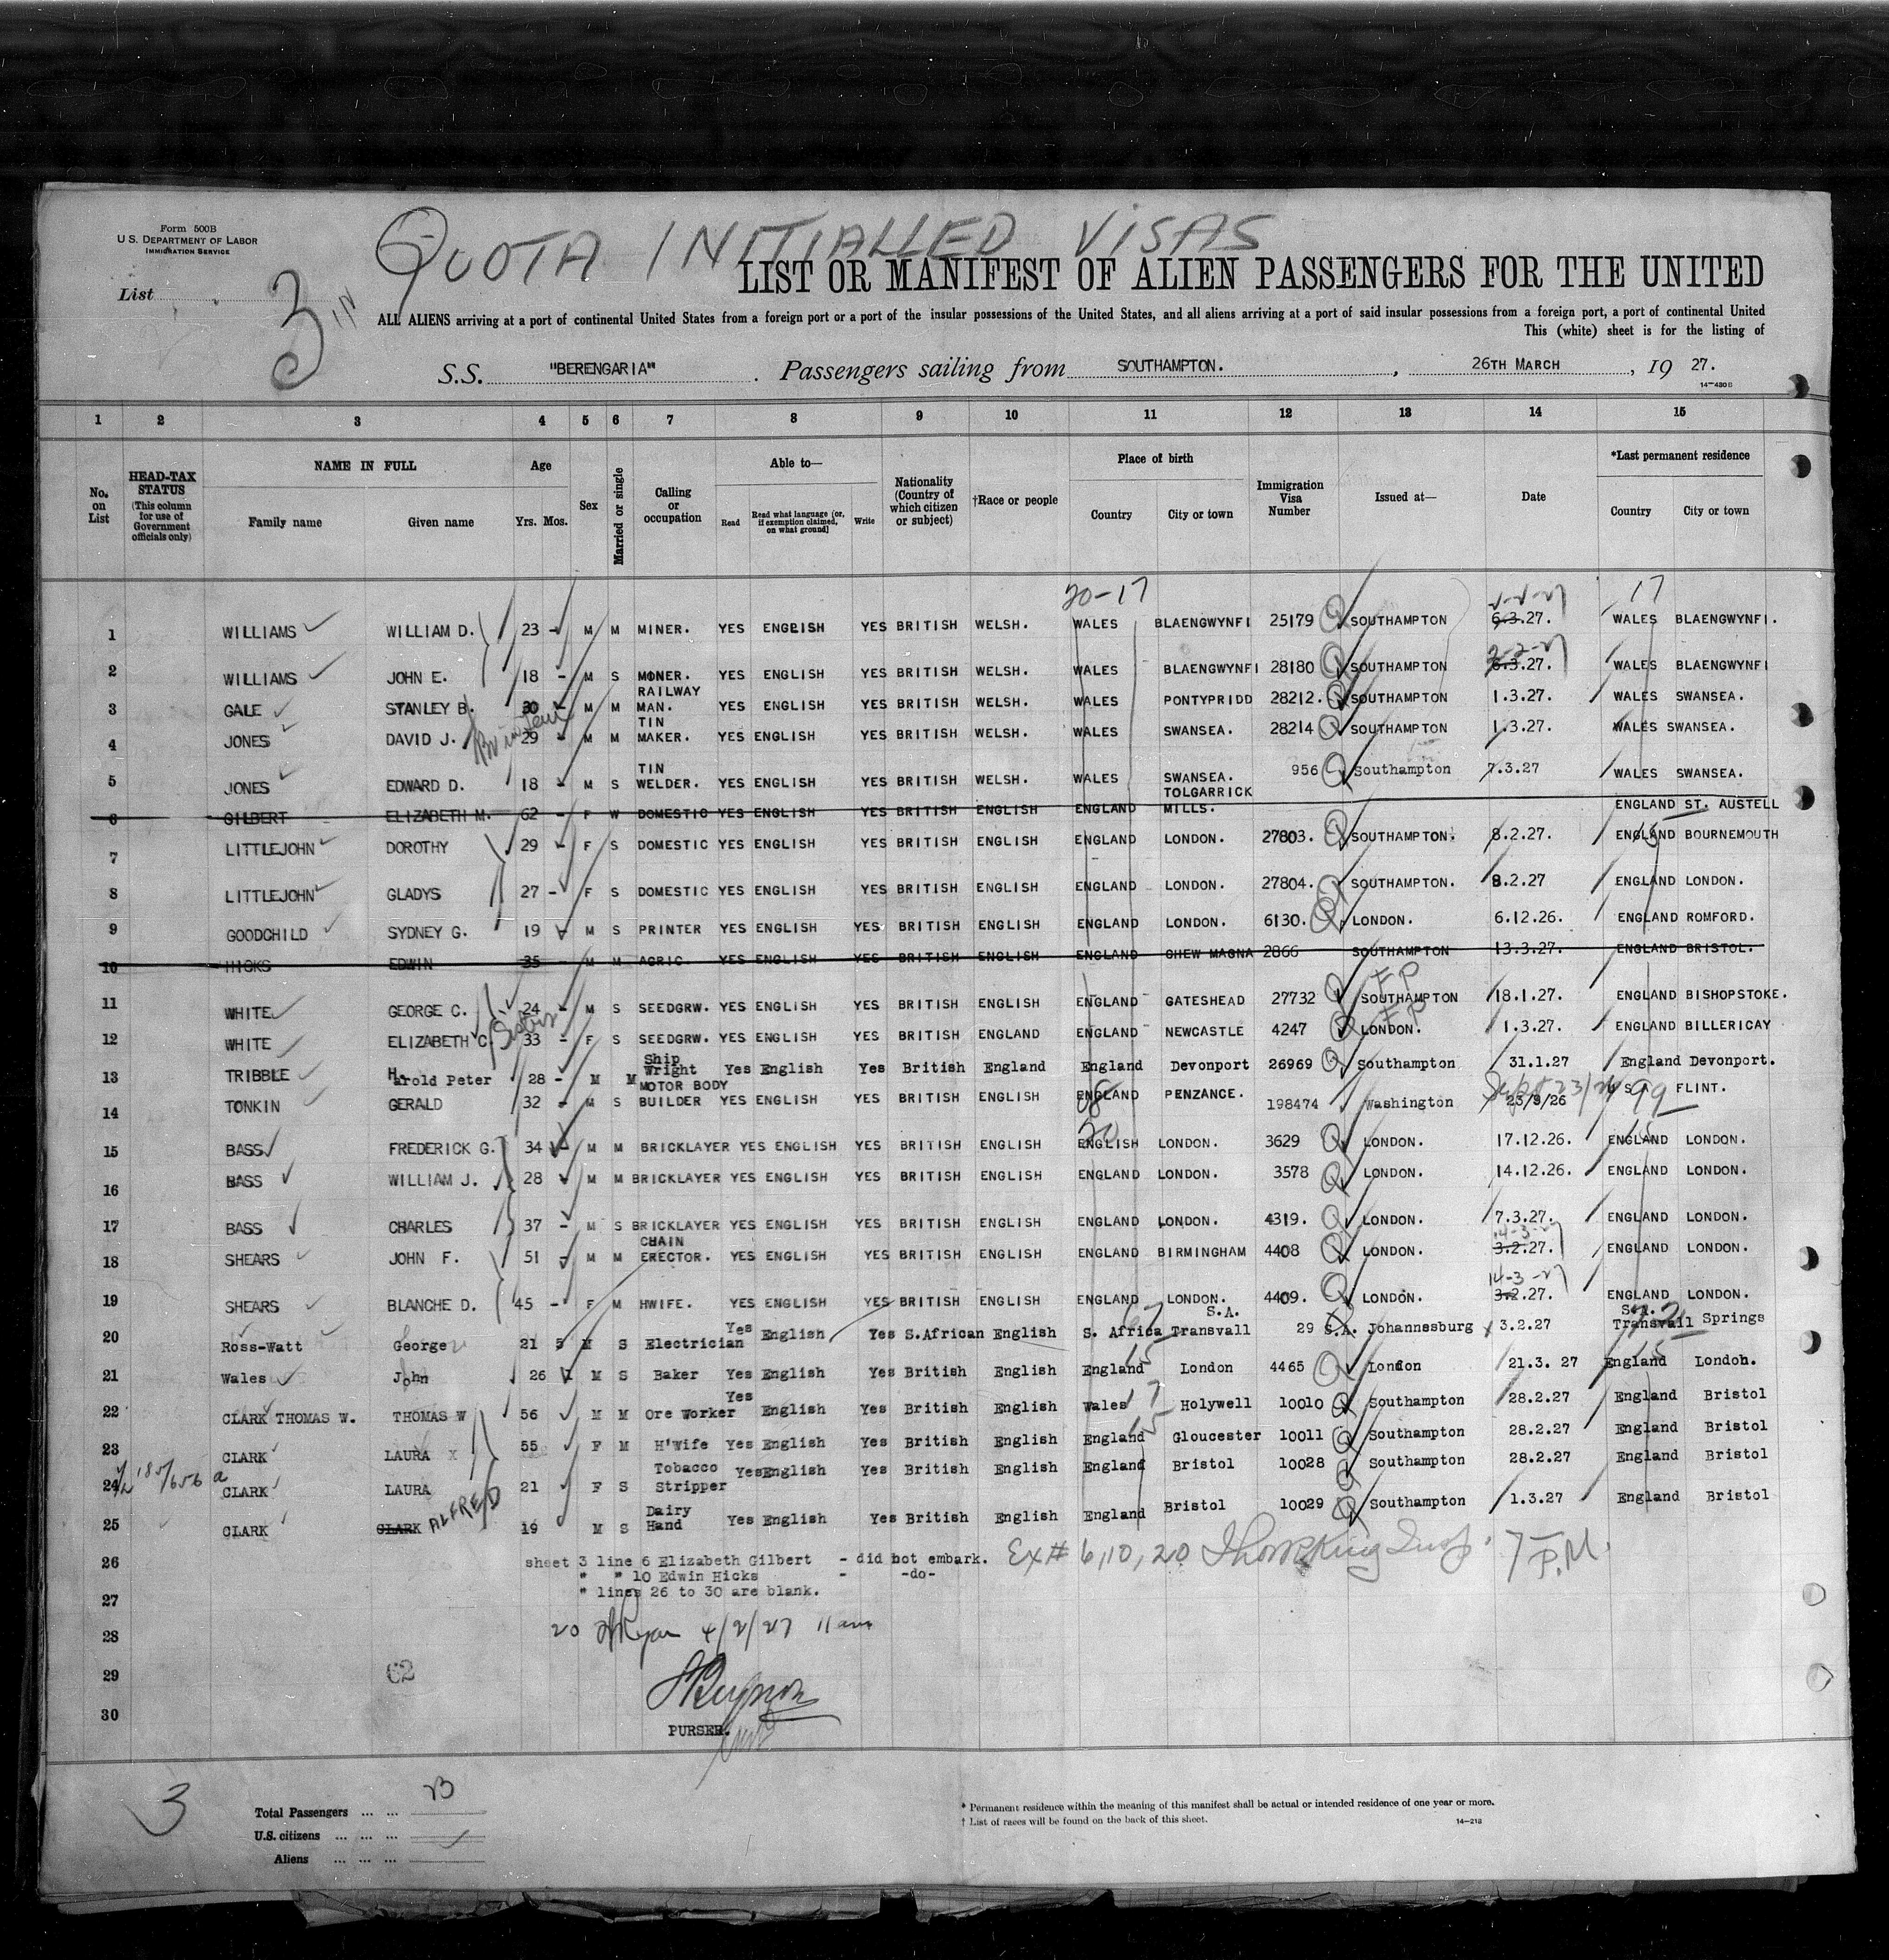 Form 500B
U. S. DEPARTMENT OF LABOR
IMMIGRATION SERVICE
QUOTA INITIALLED VISAS
List
3
LIST OR MANIFEST OF ALIEN PASSENGERS FOR THE UNITED
ALL ALIENS arriving at a port of continental United States from a foreign port or a port of the insular possessions of the United States, and all aliens arriving at a port of said insular possessions from a foreign port, a port of continental United
This (white) sheet is for the listing of
S.S. "BERENGARIA" . Passengers sailing from SOUTHAMPTON. , 26TH MARCH , 19 27.
14-430B
1 2 3 4 5 6 7 8 9 10 11 12 13 14 15
No. on List HEAD-TAX STATUS (This column for use of Government officials only) NAME IN FULL Family name Given name Age Yrs. Mos. Sex Married or single Calling or occupation Able to— Read Read what language (or, if exemption claimed, on what ground) Write Nationality (Country of which citizen or subject) †Race or people Place of birth Country City or town Immigration Visa Number Issued at— Date *Last permanent residence Country City or town
20-17 17
1 WILLIAMS WILLIAM D. 23 - M M MINER. YES ENGLISH YES BRITISH WELSH. WALES BLAENGWYNFI 25179 Q SOUTHAMPTON 6.3.27. WALES BLAENGWYNFI.
2-2-27
2 WILLIAMS JOHN E. 18 - M S MINER. YES ENGLISH YES BRITISH WELSH. WALES BLAENGWYNFI 28180 Q SOUTHAMPTON 6.3.27. WALES BLAENGWYNFI
3 GALE STANLEY B. 30 - M M RAILWAY MAN. YES ENGLISH YES BRITISH WELSH. WALES PONTYPRIDD 28212. Q SOUTHAMPTON 1.3.27. WALES SWANSEA.
4 JONES DAVID J. 29 - M M TIN MAKER. YES ENGLISH YES BRITISH WELSH. WALES SWANSEA. 28214 Q SOUTHAMPTON 1.3.27. WALES SWANSEA.
5 JONES EDWARD D. 18 - M S TIN WELDER. YES ENGLISH YES BRITISH WELSH. WALES SWANSEA. 956 Q Southampton 7.3.27 WALES SWANSEA.
6 GILBERT ELIZABETH M. 62 - F W DOMESTIC YES ENGLISH YES BRITISH ENGLISH ENGLAND TOLGARRICK MILLS. ENGLAND ST. AUSTELL
7 LITTLEJOHN DOROTHY 29 - F S DOMESTIC YES ENGLISH YES BRITISH ENGLISH ENGLAND LONDON. 27803. Q SOUTHAMPTON. 8.2.27. ENGLAND BOURNEMOUTH
8 LITTLEJOHN GLADYS 27 - F S DOMESTIC YES ENGLISH YES BRITISH ENGLISH ENGLAND LONDON. 27804. Q SOUTHAMPTON. 8.2.27 ENGLAND LONDON.
9 GOODCHILD SYDNEY G. 19 - M S PRINTER YES ENGLISH YES BRITISH ENGLISH ENGLAND LONDON. 6130. Q LONDON. 6.12.26. ENGLAND ROMFORD.
10 HICKS EDWIN 35 M M AGRIC. YES ENGLISH YES BRITISH ENGLISH ENGLAND CHEW MAGNA 2866 SOUTHAMPTON 13.3.27. ENGLAND BRISTOL.
11 WHITE GEORGE C. 24 - M S SEEDGRW. YES ENGLISH YES BRITISH ENGLISH ENGLAND GATESHEAD 27732 Q SOUTHAMPTON 18.1.27. ENGLAND BISHOPSTOKE.
12 WHITE ELIZABETH C. Sister 33 - F S SEEDGRW. YES ENGLISH YES BRITISH ENGLAND ENGLAND NEWCASTLE 4247 Q LONDON. 1.3.27. ENGLAND BILLERICAY
13 TRIBBLE Harold Peter 28 - M M Ship Wright Yes English Yes British England England Devonport 26969 Q Southampton 31.1.27 England Devonport.
14 TONKIN GERALD 32 - M S MOTOR BODY BUILDER YES ENGLISH YES BRITISH ENGLISH ENGLAND PENZANCE. 198474 Washington 23/9/26 U S A. FLINT.
15 BASS FREDERICK G. 34 - M M BRICKLAYER YES ENGLISH YES BRITISH ENGLISH ENGLISH LONDON. 3629 Q LONDON. 17.12.26. ENGLAND LONDON.
16 BASS WILLIAM J. 28 - M M BRICKLAYER YES ENGLISH YES BRITISH ENGLISH ENGLAND LONDON. 3578 Q LONDON. 14.12.26. ENGLAND LONDON.
17 BASS CHARLES 37 - M S BRICKLAYER YES ENGLISH YES BRITISH ENGLISH ENGLAND LONDON. 4319. Q LONDON. 7.3.27. ENGLAND LONDON.
14-3-27
18 SHEARS JOHN F. 51 - M M CHAIN ERECTOR. YES ENGLISH YES BRITISH ENGLISH ENGLAND BIRMINGHAM 4408 Q LONDON. 3.2.27. ENGLAND LONDON.
14-3-27
19 SHEARS BLANCHE D. 45 - F M HWIFE. YES ENGLISH YES BRITISH ENGLISH ENGLAND LONDON. 4409. Q LONDON. 3.2.27. ENGLAND LONDON.
20 Ross-Watt George 21 5 M S Electrician Yes English Yes S.African English S. Africa Transvall S.A. 29 S.A. Johannesburg 3.2.27 S.A. Transvail Springs
21 Wales John 26 1 M S Baker Yes English Yes British English England London 4465 Q London 21.3. 27 England London.
22 CLARK THOMAS W. THOMAS W 56 M M Ore Worker Yes English Yes British English Wales 17 Holywell 10010 Q Southampton 28.2.27 England Bristol
23 CLARK LAURA X 55 F M H'Wife Yes English Yes British English England Gloucester 10011 Q Southampton 28.2.27 England Bristol
24 CLARK LAURA 21 F S Tobacco Stripper Yes English Yes British English England Bristol 10028 Q Southampton 28.2.27 England Bristol
25 CLARK CLARK ALFRED 19 M S Dairy Hand Yes English Yes British English England Bristol 10029 Q Southampton 1.3.27 England Bristol
26 sheet 3 line 6 Elizabeth Gilbert - did not embark. Ex# 6,10,20 7 P.M.
" " 10 Edwin Hicks - -do-
27 " lines 26 to 30 are blank.
28 20 4/2/27 11 am
29 62
30
PURSER.
3
Total Passengers ... ... 23
U.S. citizens ... ... ...
Aliens ... ... ...
* Permanent residence within the meaning of this manifest shall be actual or intended residence of one year or more.
† List of races will be found on the back of this sheet.
14-218